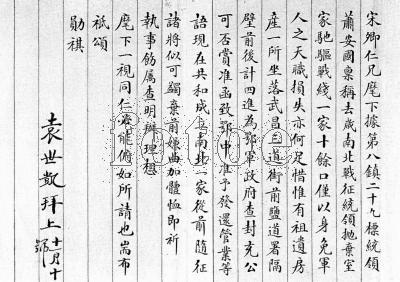 宋卿仁兄麾下據第八鎮二十九標統領
蕭安國稟稱去歲南北戰征統領抛棄室
家馳驅戰綫一家十餘口僅以身免軍
人之天職損失亦何足惜惟有祖遺房
產一所坐落武昌司道街前鹽道署隔
壁前後計四進為鄂軍政府查封充公
可否賞准函致鄂中准予發還管業等
語現在共和成立南北一家從前隨征
諸將似可蠲棄前嫌曲加體恤即祈
執事飭屬查明辦理想
麾下一視同仁必能俯如所請也耑布
祇頌
勛祺
袁世凱拜上十二月十
號